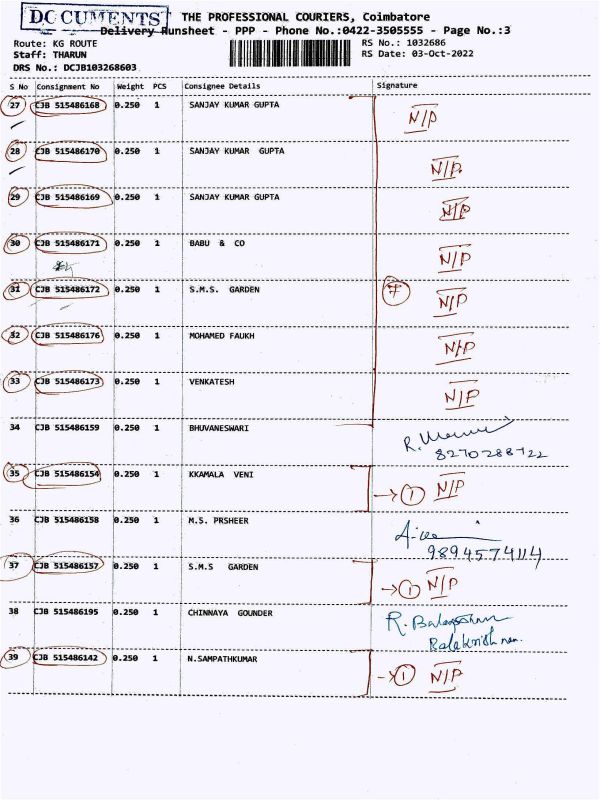 DOCUMENTS
THE PROFESSIONAL COURIERS, Coimbatore
Delivery Runsheet - PPP - Phone No.:0422-3505555 - Page No.:3
Route: KG ROUTE RS No.: 1032686
Staff: THARUN RS Date: 03-Oct-2022
DRS No.: DCJB103268603
S No Consignment No Weight PCS Consignee Details Signature
27 CJB 515486168 0.250 1 SANJAY KUMAR GUPTA N/P
28 CJB 515486170 0.250 1 SANJAY KUMAR GUPTA N/P
29 CJB 515486169 0.250 1 SANJAY KUMAR GUPTA N/P
30 CJB 515486171 0.250 1 BABU & CO N/P
31 CJB 515486172 0.250 1 S.M.S. GARDEN 7 N/P
32 CJB 515486176 0.250 1 MOHAMED FAUKH N/P
33 CJB 515486173 0.250 1 VENKATESH N/P
34 CJB 515486159 0.250 1 BHUVANESWARI R.
8270288722
35 CJB 515486154 0.250 1 KKAMALA VENI → 1 N/P
36 CJB 515486158 0.250 1 M.S. PRSHEER
9894574114
37 CJB 515486157 0.250 1 S.M.S GARDEN → 1 N/P
38 CJB 515486195 0.250 1 CHINNAYA GOUNDER R.
Balakrishnan.
39 CJB 515486142 0.250 1 N.SAMPATHKUMAR → 1 N/P